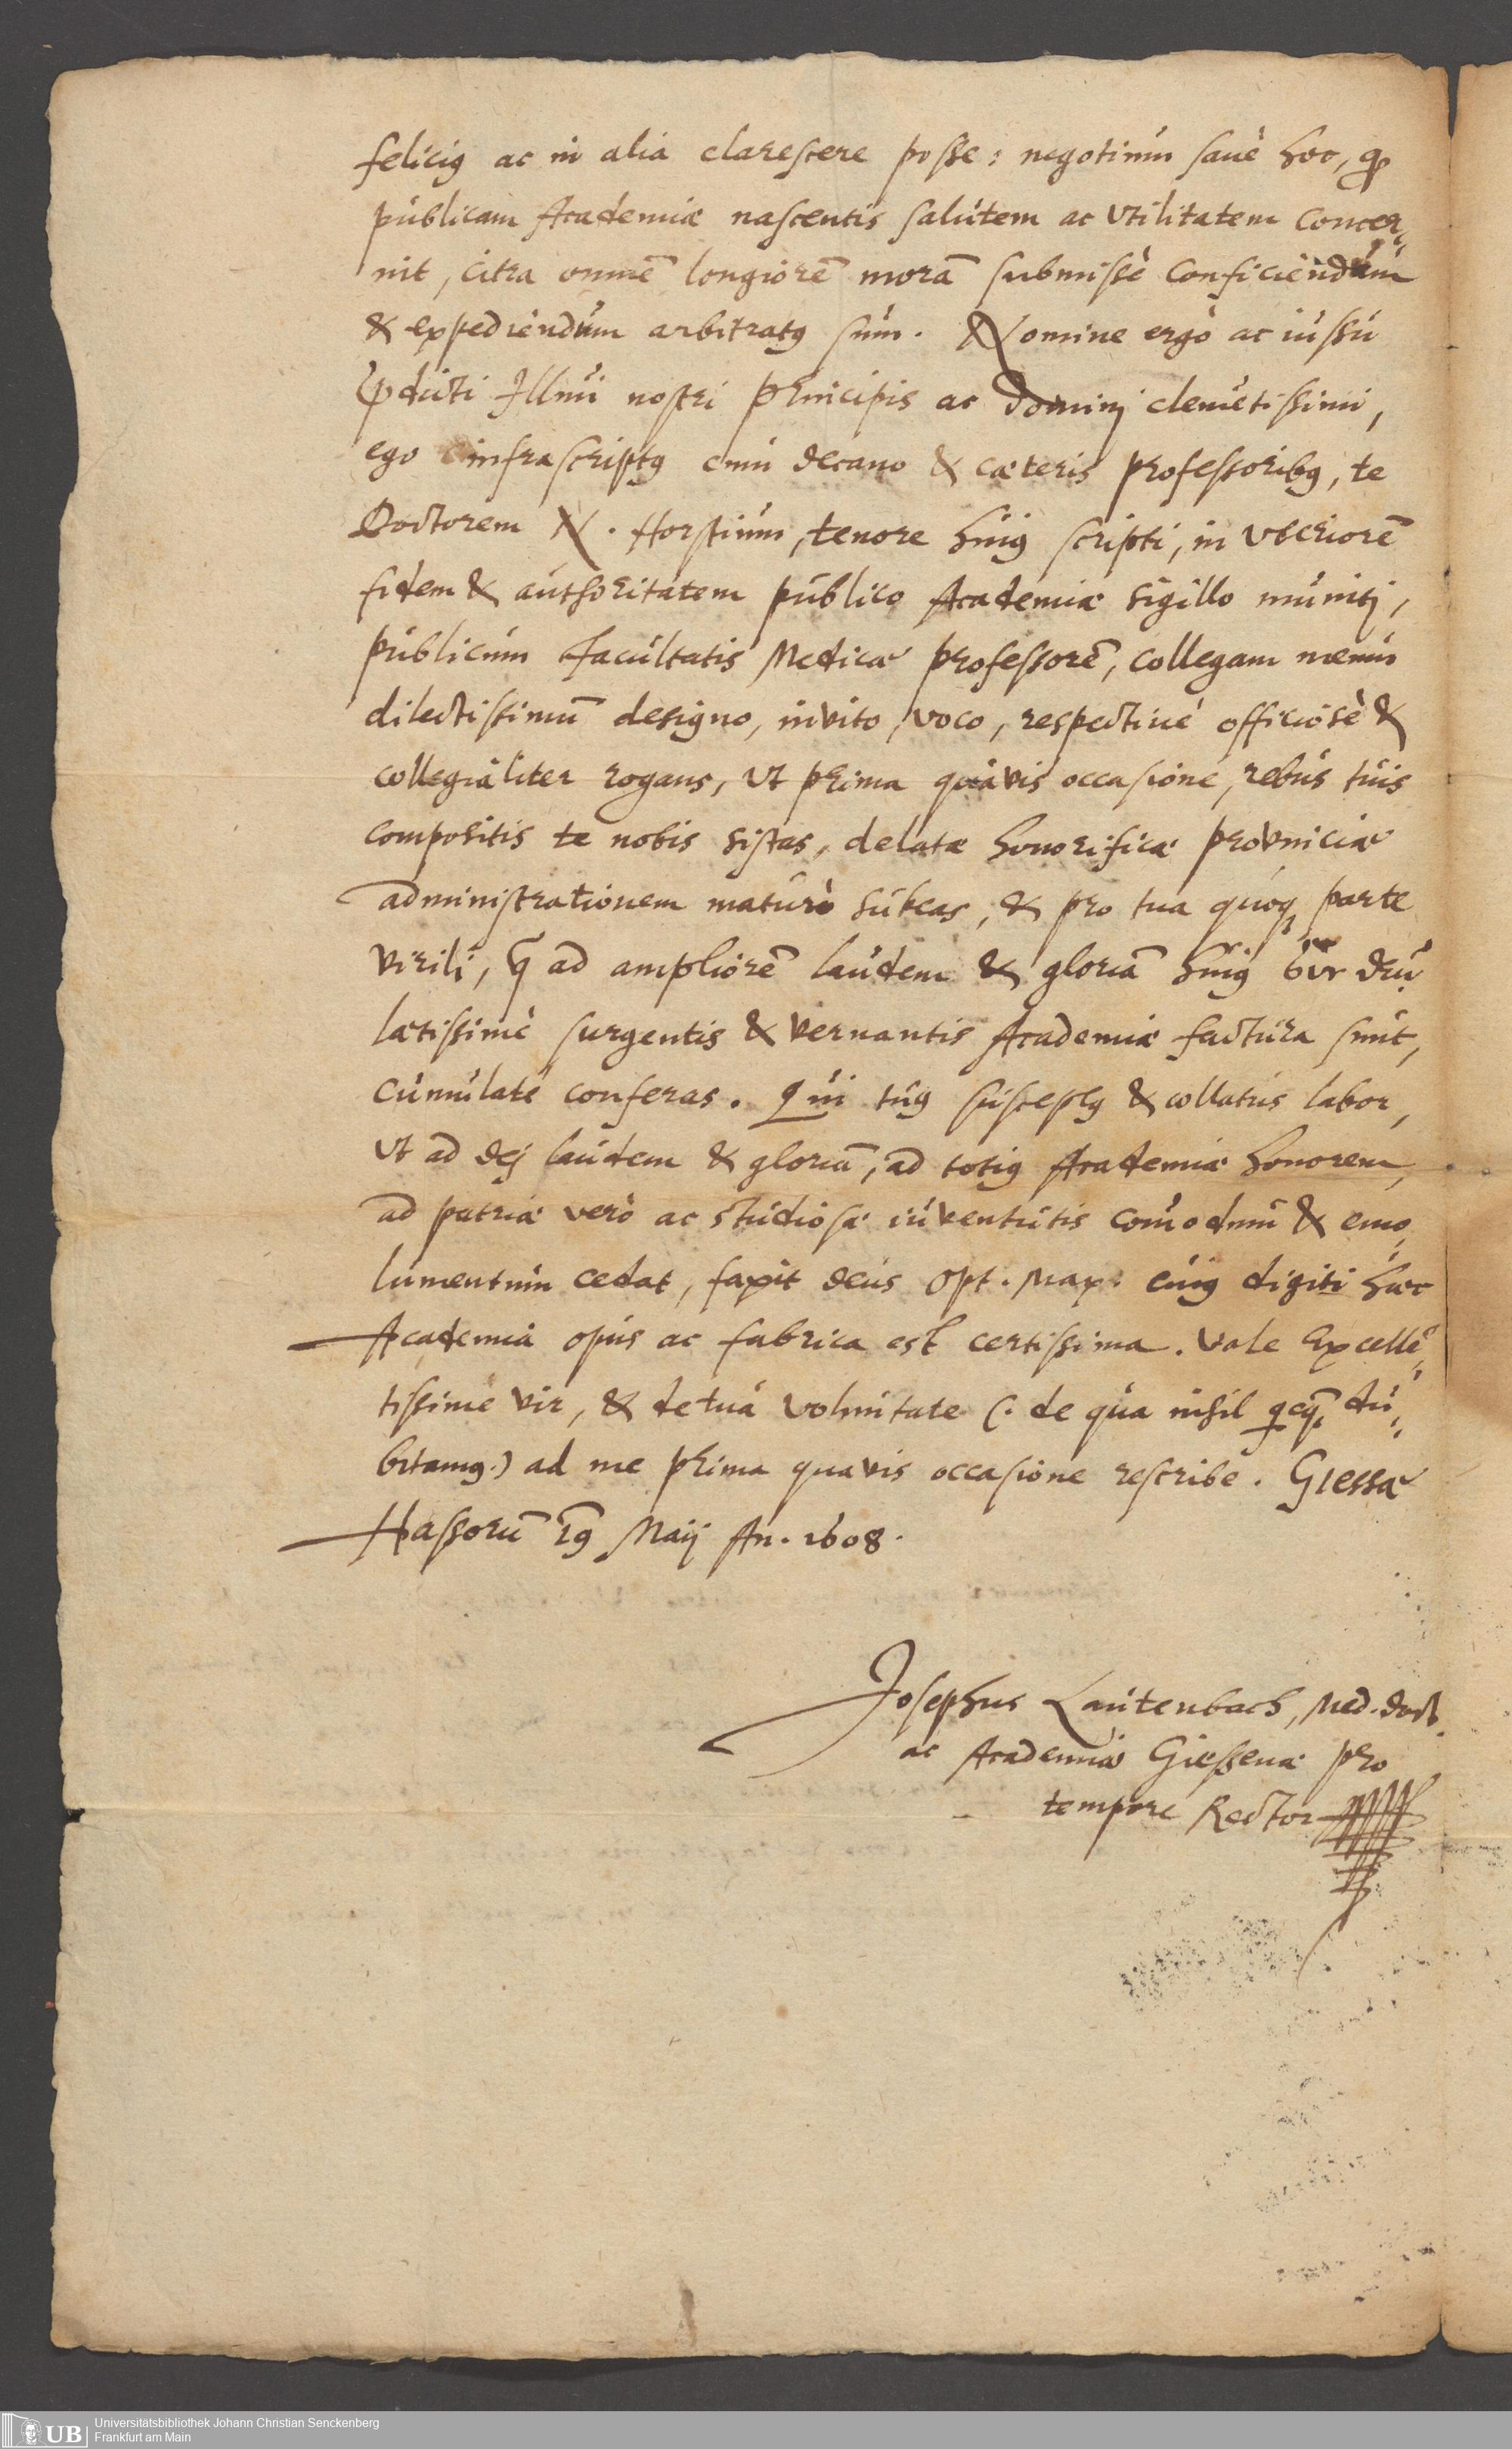 feliciꝰ ac in alia clarescere posse: negotium sanè hoc, ꝙ
publicam Academiæ nascentis salutem ac Vtilitatem concer„
nit, citra omnē longiorē morā submissè conficiendum
& expediendum arbitratꝰ sum. Nomine ergò ac iussu
p̄dicti Illmi nostri Principis ac Dominj clemētissimi,
ego infrascriptꝰ cum decano & cæteris professoribꝰ, te
Doctorem N. Horstium, tenore huiꝰ scripti, in Vlteriorē
fidem & authoritatem publico Academiæ sigillo munitj,
publicum Facultatis Medicæ professorē, collegam meum
dilectissimū designo, invito, voco, respectiuè officiosè &
collegialiter rogans, Vt prima quâvis occasione, rebus tuis
compositis te nobis sistas, delatæ honorificæ provinciæ
administrationem maturè subeas, & pro tua quoqꝫ parte
virili, q̄ ad ampliorē laudem & gloriā huiꝰ
lætissimè surgentis & vernantis Academiæ factura sunt,
cumulatè conferas. Qui tuꝰ susceptꝰ & collatus labor,
Vt ad dej laudem & gloriā, ad totiꝰ Academiæ honorem,
ad patriæ verò ac studiosæ iuventutis com̄odum & emo„
lumentum cedat, faxit deus Opt. Max. cuiꝰ digiti hæc
Academia opus ac fabrica est certissima. Vale Excellē„
tissime vir, & de tuâ voluntate (. de quâ nihil dū„
bitamꝰ.) ad me prima quavis occasione rescribe. Giessæ
Hassorū 19 Maij An. 1608.
Josephus Lautenbach, Med. Doct.
ac Academiæ Giessenæ pro
tempore Rector
UB
Universitätsbibliothek Johann Christian Senckenberg
Frankfurt am Main